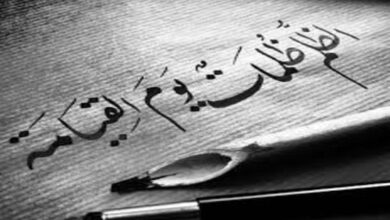 الظلم ظُلمات يَومَ القِيَامَة